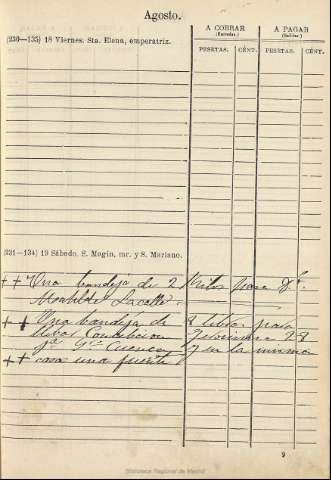 Agosto.
A COBRAR
(Entradas.)
A PAGAR
(Salidas.)
PESETAS. CÉNT. PESETAS. CÉNT.
(230—135) 18 Viernes. Sta. Elena, emperatriz.
(231—134) 19 Sábado. S. Magín, mr. y S. Mariano.
++ Una bandeja de 2 kilos para Dª
Matilde Lacalle
++ Una bandeja de 8 libras para
Concebcion 28
Cuenca y en la misma
++ casa una fuente
9
Biblioteca Regional de Madrid